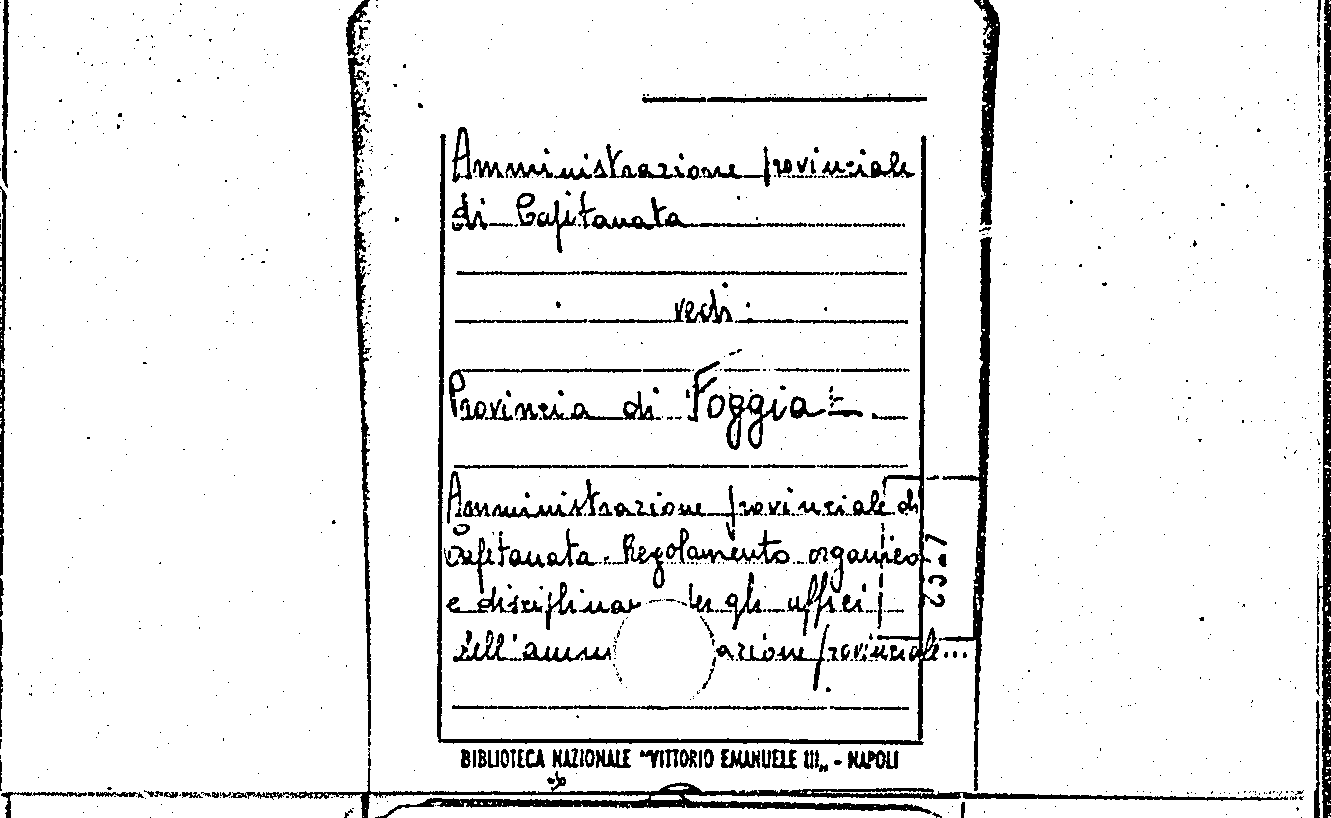 Amministrazione provinciale
di Capitanata
vedi:
Provincia di Foggia
Amministrazione provinciale di
Capitanata. Regolamento organico
e disciplinar per gli uffici
dell'amm azione provinciale...
BIBLIOTECA NAZIONALE "VITTORIO EMANUELE III„ - NAPOLI